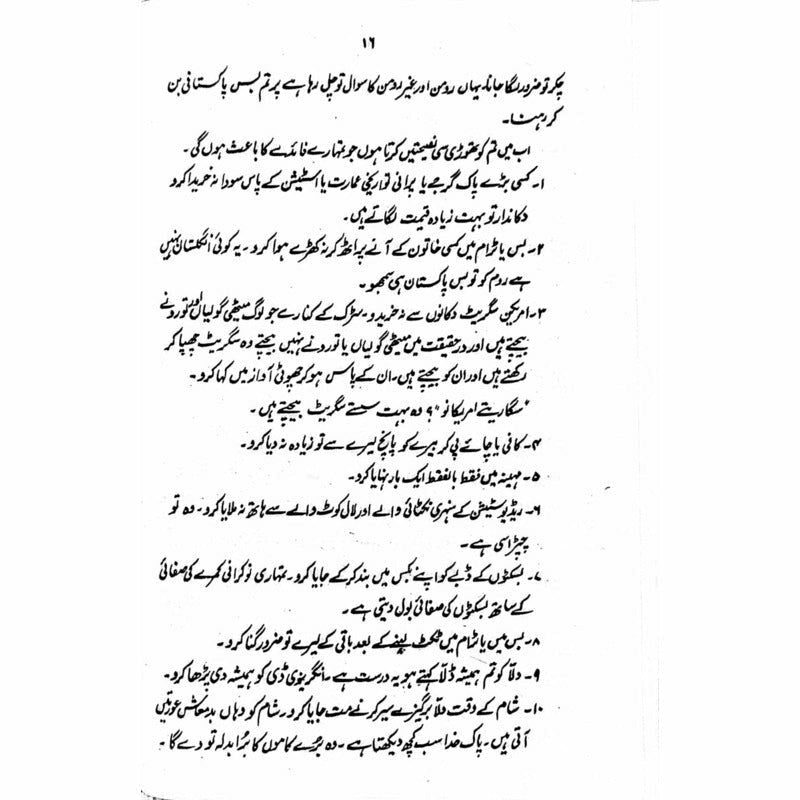 ۱۶
چکر تو ضرور لگا جانا۔ یہاں رومن اور غیر رومن کا سوال تو چل رہا ہے پر تم بس پاکستانی بن
کر رہنا۔
اب میں تم کو تھوڑی سی نصیحتیں کرتا ہوں جو تمہارے فائدے کا باعث ہوں گی۔
۱۔ کسی بڑے پاک گرجے یا پرانی تواریخی عمارت یا اسٹیشن کے پاس سودا نہ خریدا کرو
دکاندار تو بہت زیادہ قیمت لگاتے ہیں۔
۲۔ بس یا ٹرام میں کسی خاتون کے آنے پر اٹھ کر نہ کھڑے ہوا کرو۔ یہ کوئی انگلستان نہیں
ہے روم کو تو بس پاکستان ہی سمجھو۔
۳۔ امریکن سگریٹ دکانوں سے نہ خریدو۔ سڑک کے کنارے جو لوگ میٹھی گولیاں اور تورونے
بیچتے ہیں اور درحقیقت میں میٹھی گولیاں یا تورونے نہیں بیچتے وہ سگریٹ چھپا کر
رکھتے ہیں اور ان کو بیچتے ہیں۔ ان کے پاس ہو کر چھوٹی آواز میں کہا کرو۔
"سگاریتے امریکانو"؟ وہ بہت سستے سگریٹ بیچتے ہیں۔
۴۔ کافی یا چائے پی کر بیرے کو پانچ لیرے سے تو زیادہ نہ دیا کرو۔
۵۔ مہینہ میں فقط بالفقط ایک بار نہایا کرو۔
۶۔ ریڈیو سٹیشن کے سنہری نکٹائی والے اور لال کوٹ والے سے ہاتھ نہ ملایا کرو۔ وہ تو
چپڑاسی ہے۔
۷۔ بسکٹوں کے ڈبے کو اپنے بکس میں بند کر کے جایا کرو۔ تمہاری نوکرانی کمرے کی صفائی
کے ساتھ بسکٹوں کی صفائی بول دیتی ہے۔
۸۔ بس میں یا ٹرام میں ٹکٹ لینے کے بعد باقی کے لیرے تو ضرور گنا کرو۔
۹۔ دلّا کو تم ہمیشہ ڈلّا کہتے ہو یہ درست ہے۔ انگریزی ڈی کو ہمیشہ دی پڑھا کرو۔
۱۰۔ شام کے وقت دلّا برگیزے سیر کرنے مت جایا کرو۔ شام کو وہاں بدمعاش عورتیں
آتی ہیں۔ پاک خدا سب کچھ دیکھتا ہے۔ وہ بُرے کاموں کا بُرا بدلہ تو دے گا۔